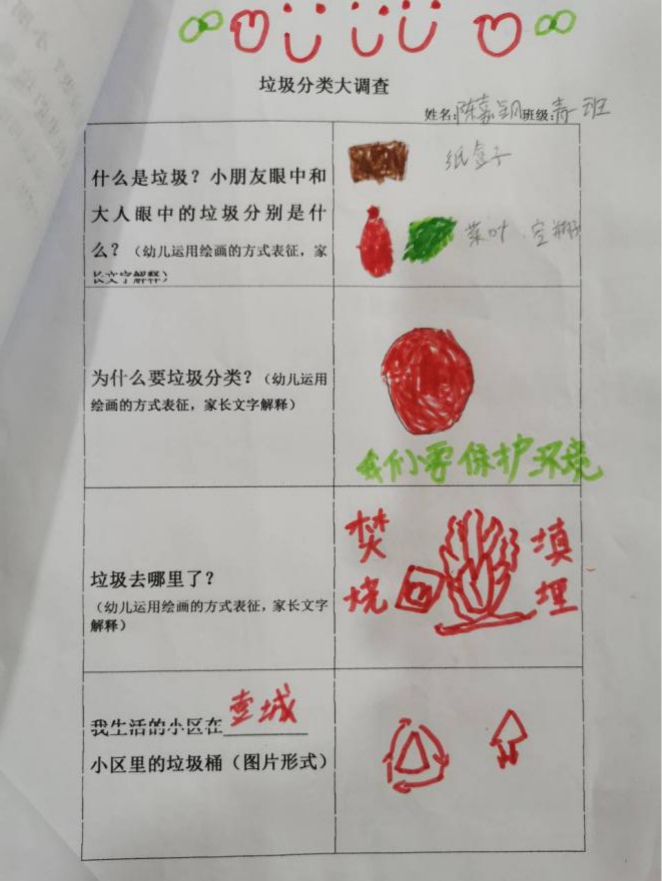 垃圾分类大调查
姓名:陈嘉玥班级:青一班
什么是垃圾？小朋友眼中和
大人眼中的垃圾分别是什
么？（幼儿运用绘画的方式表征，家
长文字解释）
纸盒子
菜叶、空瓶
为什么要垃圾分类？（幼儿运用
绘画的方式表征，家长文字解释）
我们要保护环境
垃圾去哪里了？
（幼儿运用绘画的方式表征，家长文字
解释）
焚烧
填埋
我生活的小区在壹城
小区里的垃圾桶（图片形式）